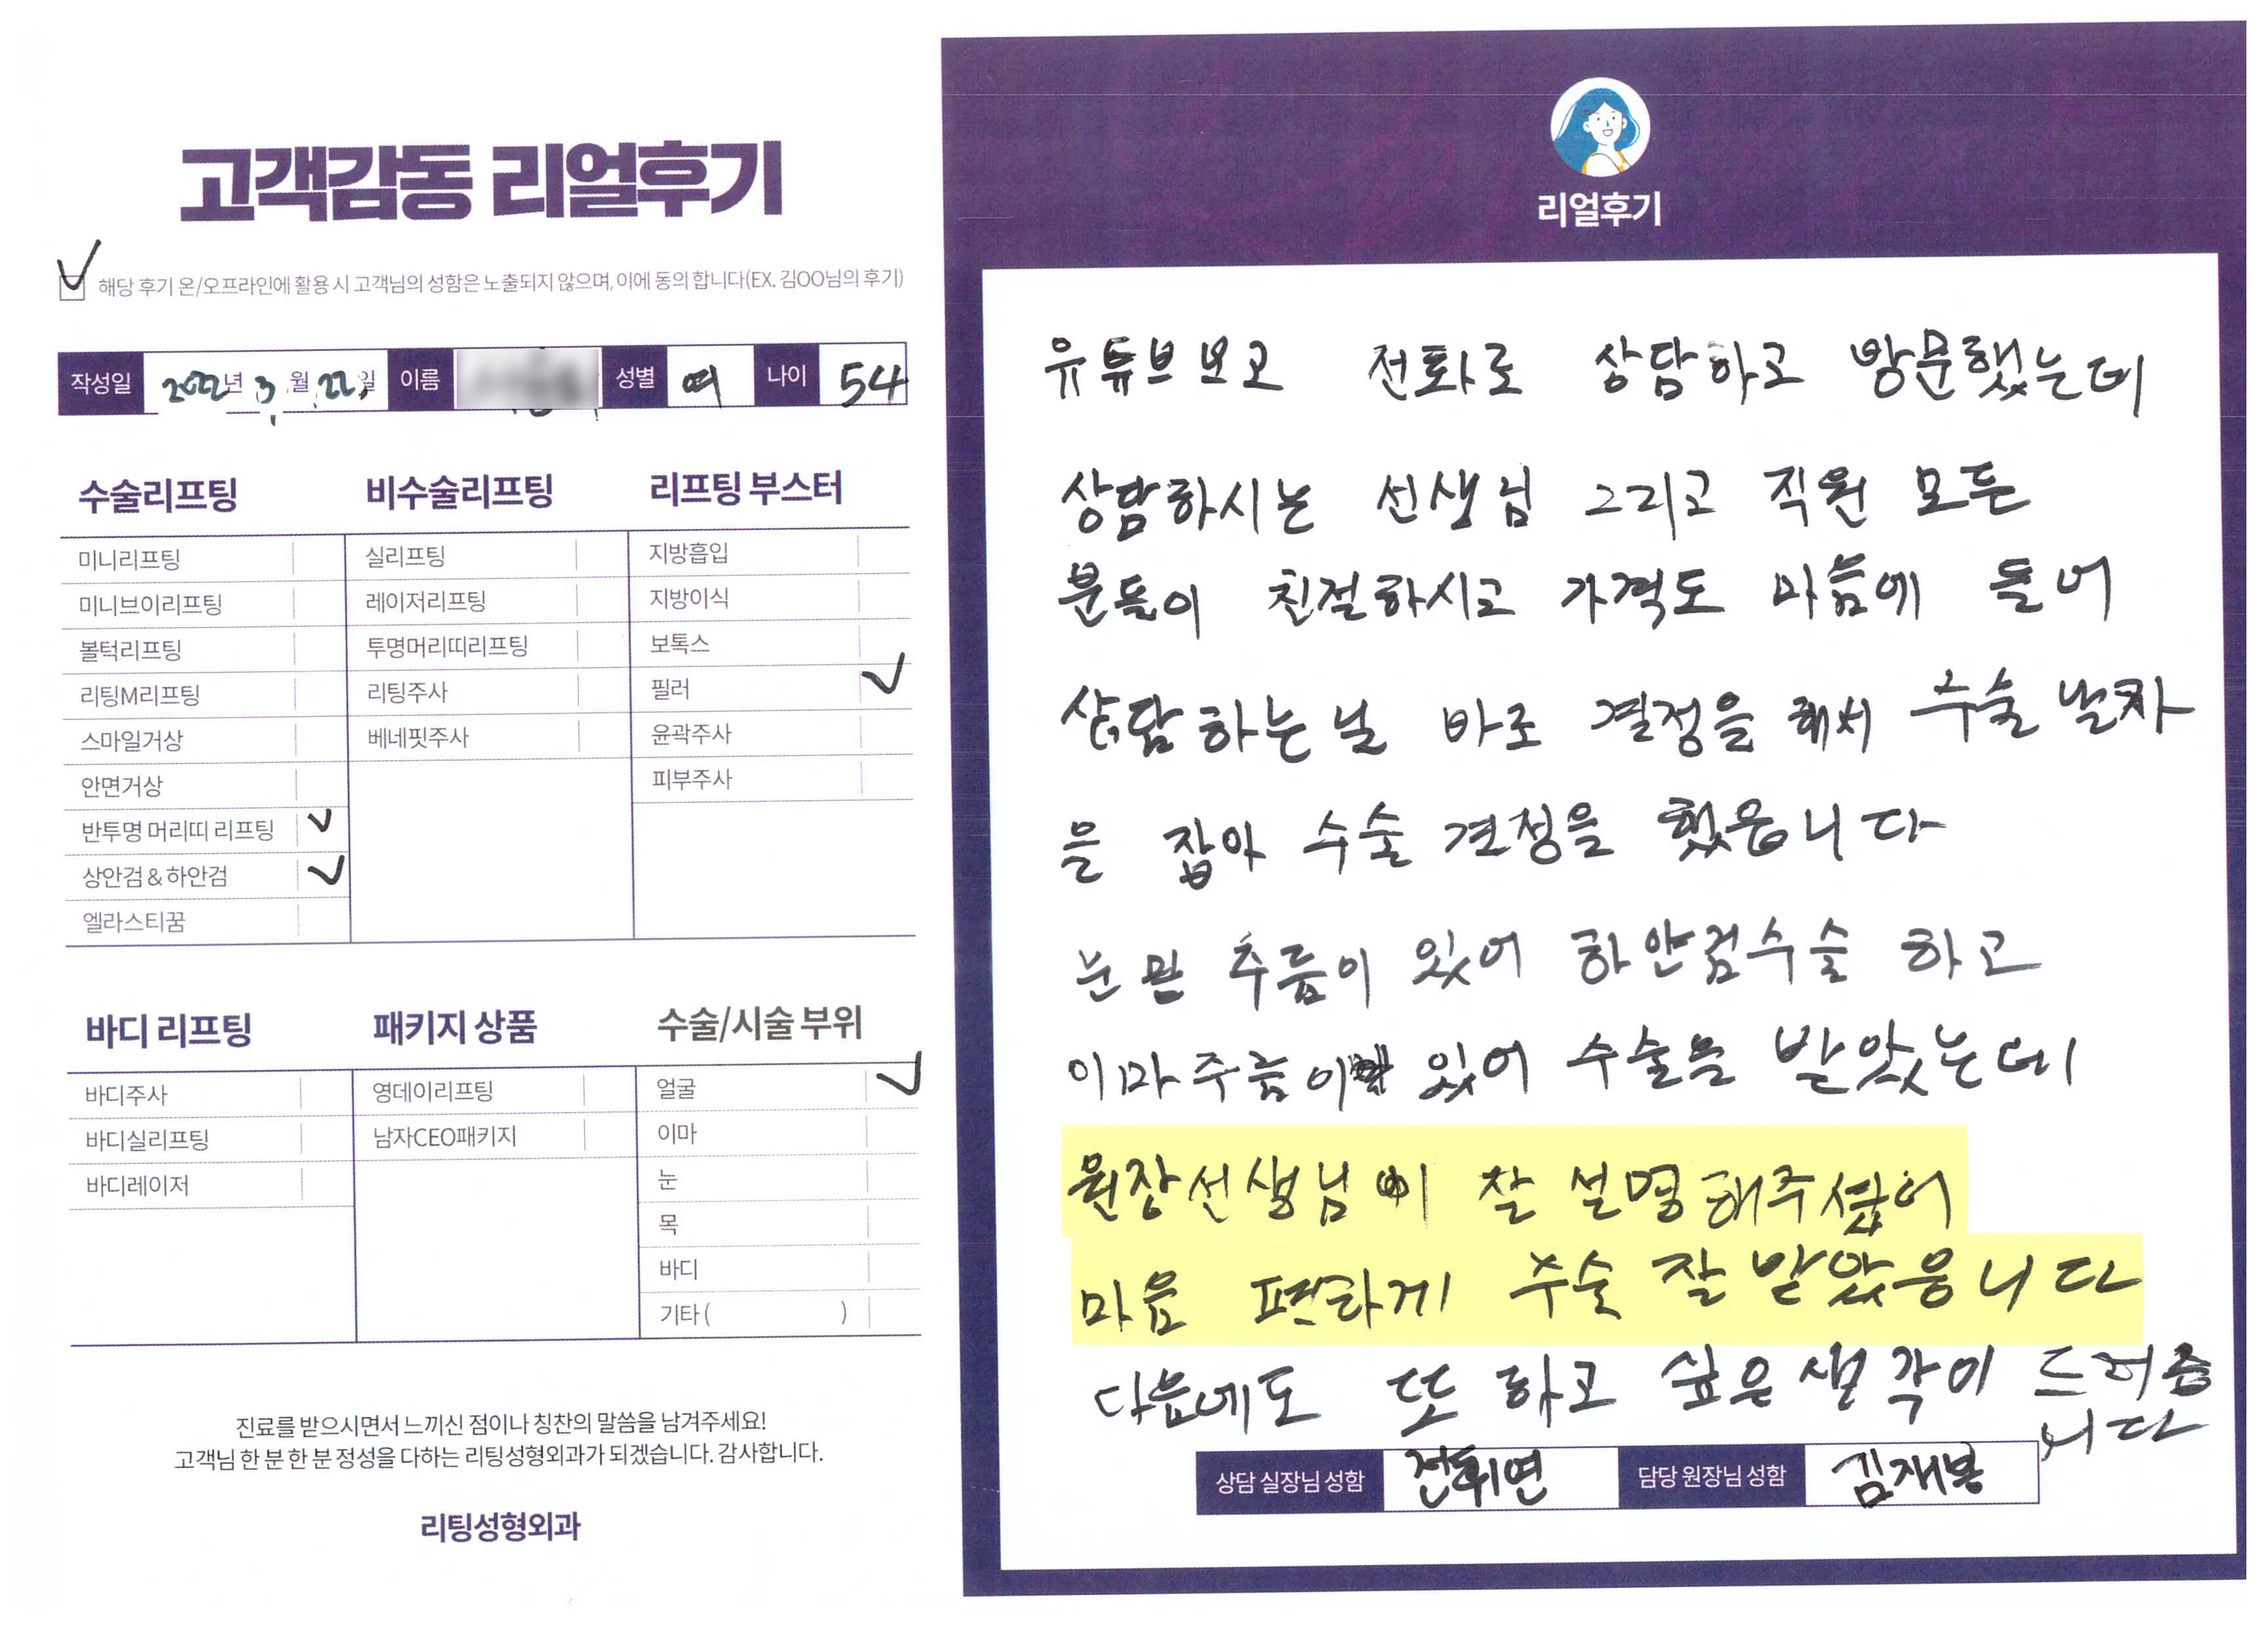 고객감동 리얼후기
해당 후기 온/오프라인에 활용 시 고객님의 성함은 노출되지 않으며, 이에 동의 합니다(EX. 김OO님의 후기)
작성일 2022년 3월 22일 이름 성별 여 나이 54
수술리프팅
미니리프팅
미니브이리프팅
볼턱리프팅
리팅M리프팅
스마일거상
안면거상
반투명 머리띠 리프팅
상안검 & 하안검
엘라스티꿈
비수술리프팅
실리프팅
레이저리프팅
투명머리띠리프팅
리팅주사
베네핏주사
리프팅 부스터
지방흡입
지방이식
보톡스
필러
윤곽주사
피부주사
바디 리프팅
바디주사
바디실리프팅
바디레이저
패키지 상품
영데이리프팅
남자CEO패키지
수술/시술 부위
얼굴
이마
눈
목
바디
기타 ( )
진료를 받으시면서 느끼신 점이나 칭찬의 말씀을 남겨주세요!
고객님 한 분 한 분 정성을 다하는 리팅성형외과가 되겠습니다. 감사합니다.
리팅성형외과
리얼후기
유튜브보고 전화로 상담하고 방문했는데
상담하시는 선생님 그리고 직원 모든
분들이 친절하시고 가격도 마음에 들어
상담하는날 바로 결정을 해서 수술 날짜
을 잡아 수술 결정을 했웁니다
눈 밑 주름이 있어 하안검수술 하고
이마주름이 있어 수술을 받았는데
원장선생님이 잘 설명해주셨어
마음 편하게 수술 잘 받았웁니다
다음에도 또 하고 싶은 생각이
니다
상담 실장님 성함 전휘연 담당 원장님 성함 김재봉